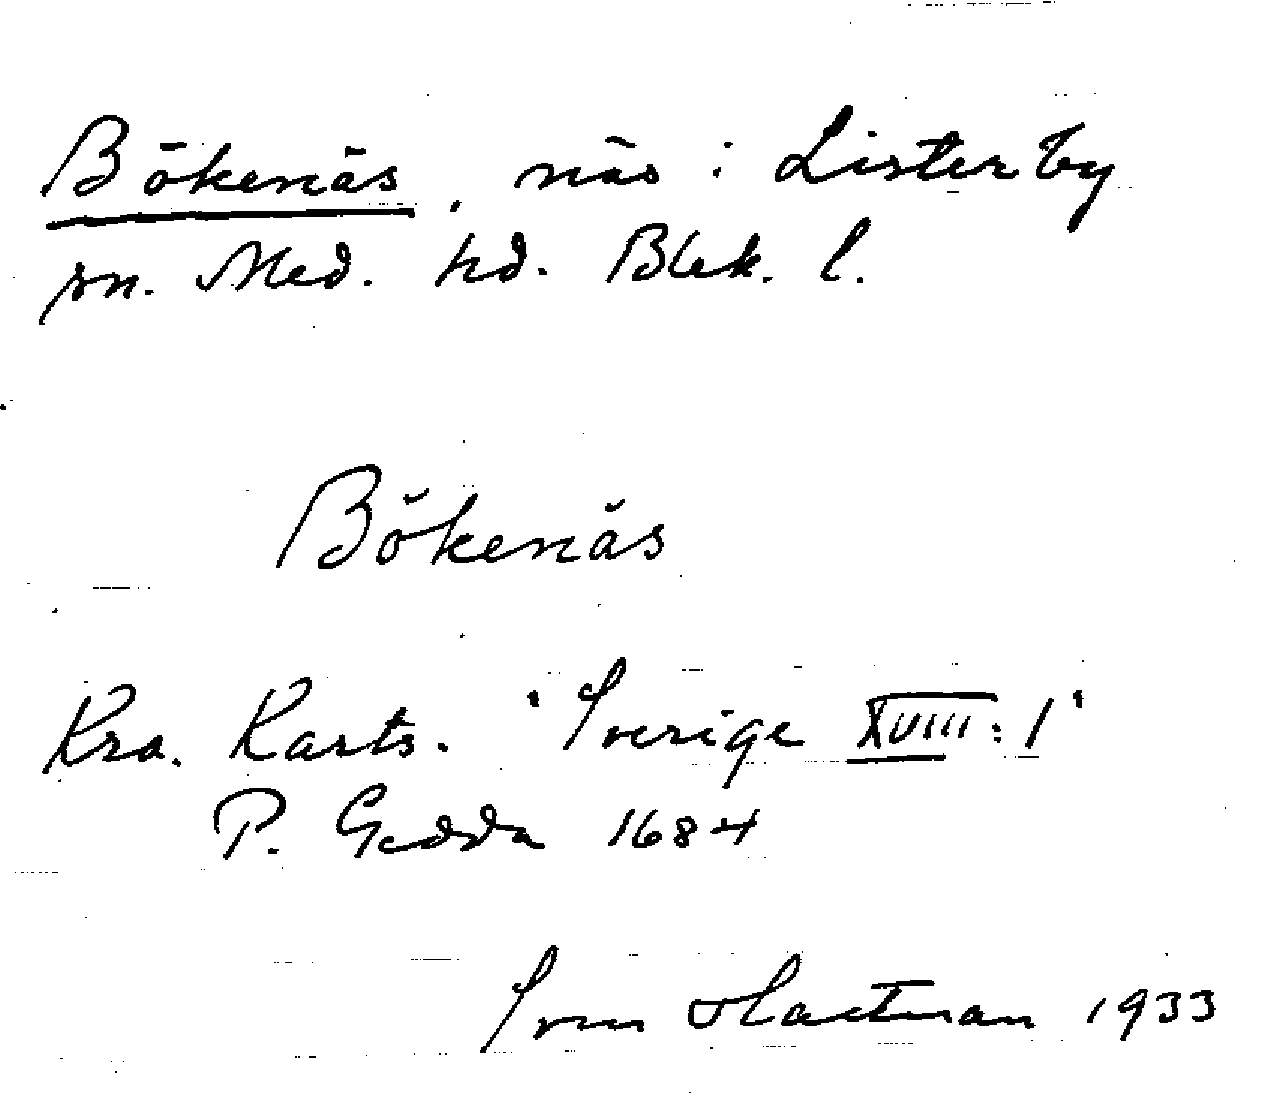 Bökenäs, näs i Listerby
sn. Med. hd. Blek. l.
Bökenäs
Kra. Karts. 'Sverige XVIIII: 1'
P. Gedda 1684
Sven 1933